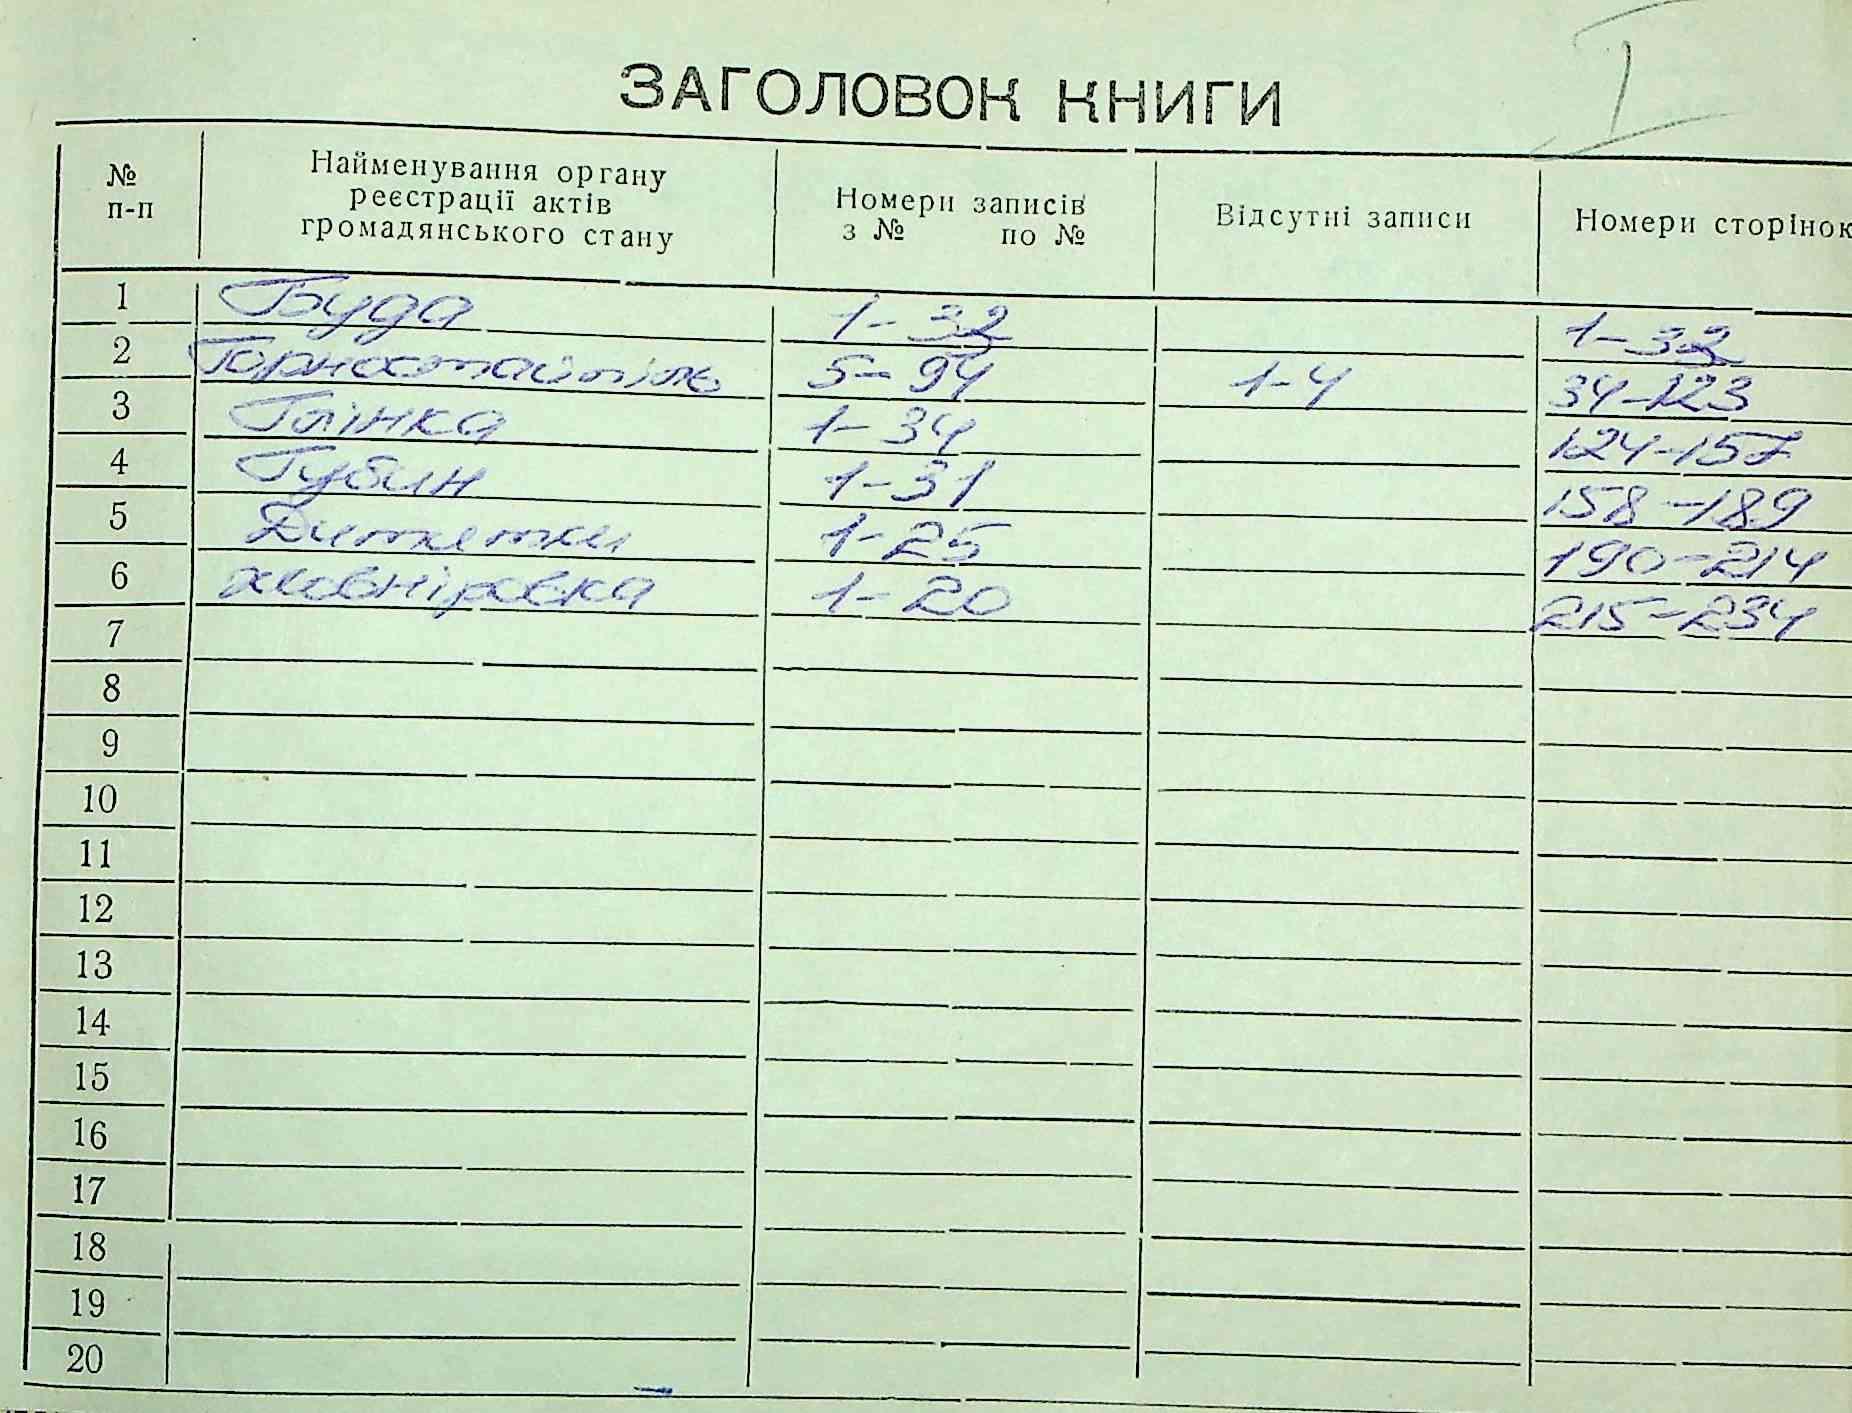 I
ЗАГОЛОВОК КНИГИ
№ п-п Найменування органу реєстрації актів громадянського стану Номери записів з № по № Відсутні записи Номери сторінок
1 Буда 1-32 1-32
2 Горностайпіль 5-94 1-4 34-123
3 Глінка 1-34 124-157
4 Губин 1-31 158-189
5 Дитятки 1-25 190-214
6 1-20 215-234
7
8
9
10
11
12
13
14
15
16
17
18
19
20